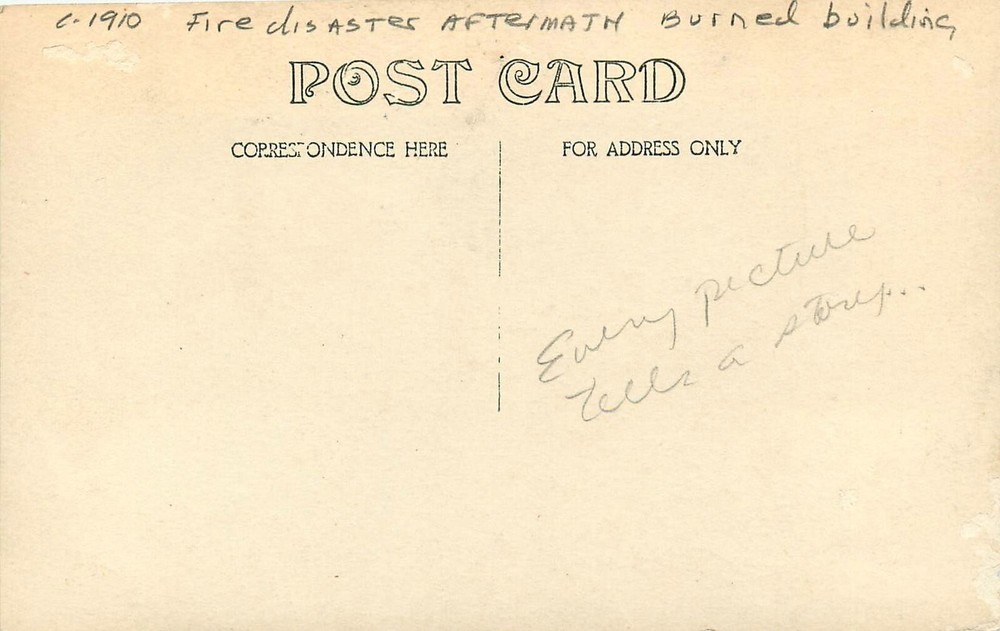 c-1910 Fire disaster AFTermATH Burned building
POST CARD
CORRESPONDENCE HERE
FOR ADDRESS ONLY
Every picture
tells a story...